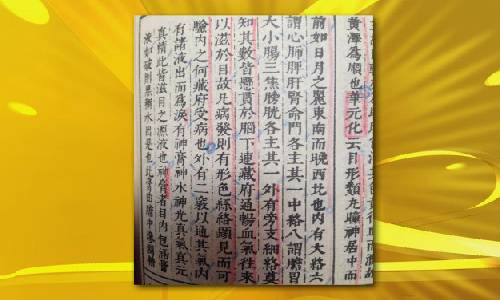 黃澤為順也華元化云目形類丸瞳神居中而
前如日月之麗東南而晚西北也內有大絡六
謂心肺脾肝腎命門各主其一中絡八謂膽胃
大小腸三焦膀胱各主其一外有旁支細絡莫
知其數皆懸貫於腦下連藏府通暢血氣往來
以滋於目故凡病發則有形色絲絡顯見而可
驗內之何藏府受病也外有二竅以通其氣內
有諸液出而為淚有神膏神水神光真氣真元
真精此皆滋目之源液也神膏者目內包涵膏
液如破則黑稠水出是也此膏由膽中滲潤精